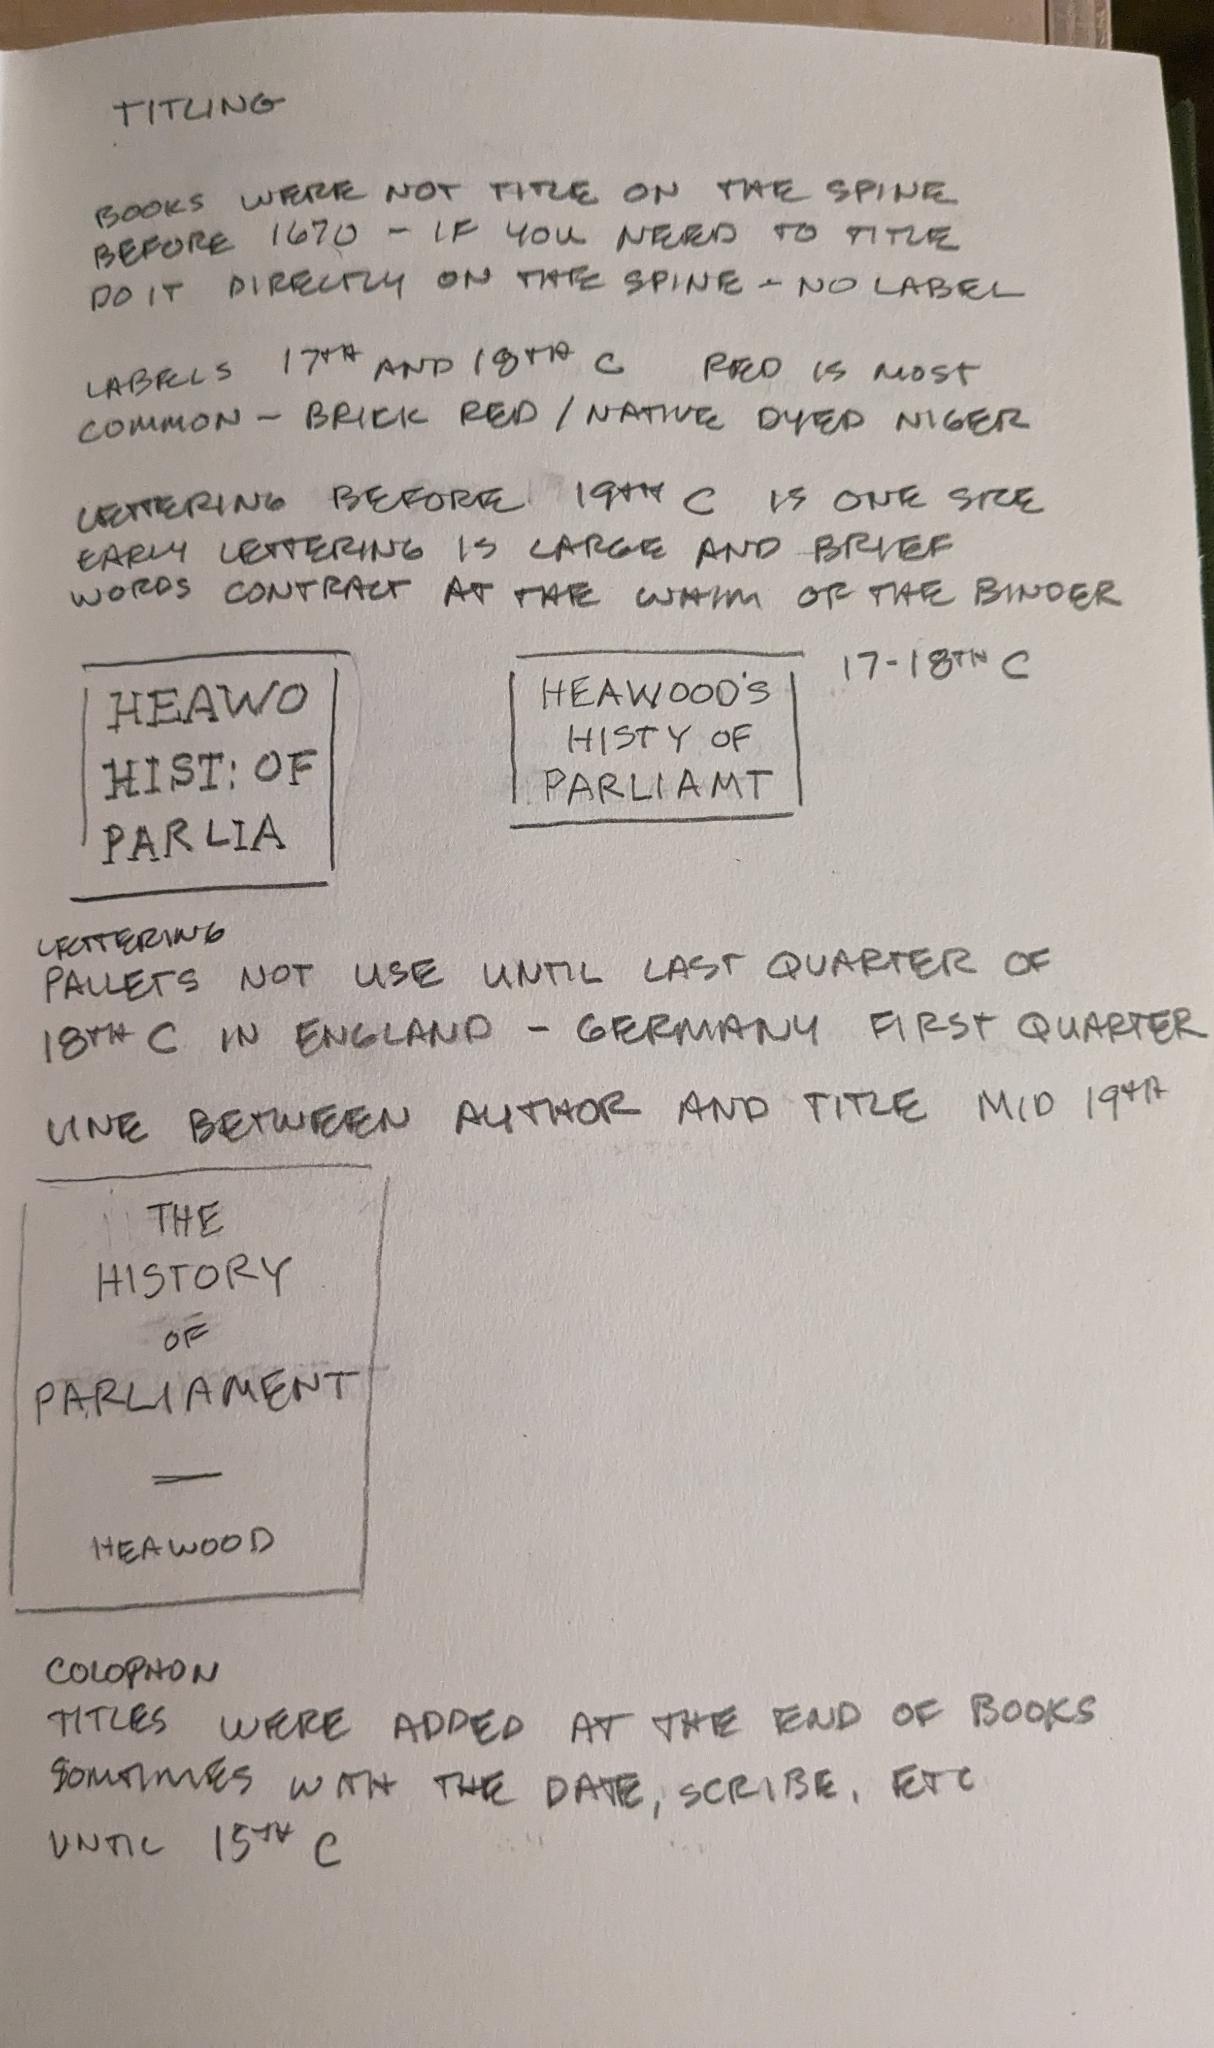 TITLING
BOOKS WERE NOT TITLE ON THE SPINE
BEFORE 1670 - IF YOU NEED TO TITLE
DO IT DIRECTLY ON THE SPINE - NO LABEL
LABELS 17TH AND 18TH C RED IS MOST
COMMON - BRICK RED / NATIVE DYED NIGER
LETTERING BEFORE 19TH C IS ONE SIZE
EARLY LETTERING IS LARGE AND BRIEF
WORDS CONTRACT AT THE WHIM OF THE BINDER
HEAWO
HIST: OF
PARLIA
HEAWOOD'S
HISTY OF
PARLIAMT
17-18TH C
LETTERING
PALLETS NOT USE UNTIL LAST QUARTER OF
18TH C IN ENGLAND - GERMANY FIRST QUARTER
LINE BETWEEN AUTHOR AND TITLE MID 19TH
THE
HISTORY
OF
PARLIAMENT
HEAWOOD
COLOPHON
TITLES WERE ADDED AT THE END OF BOOKS
SOMTIMES WITH THE DATE, SCRIBE, ETC
UNTIL 15TH C